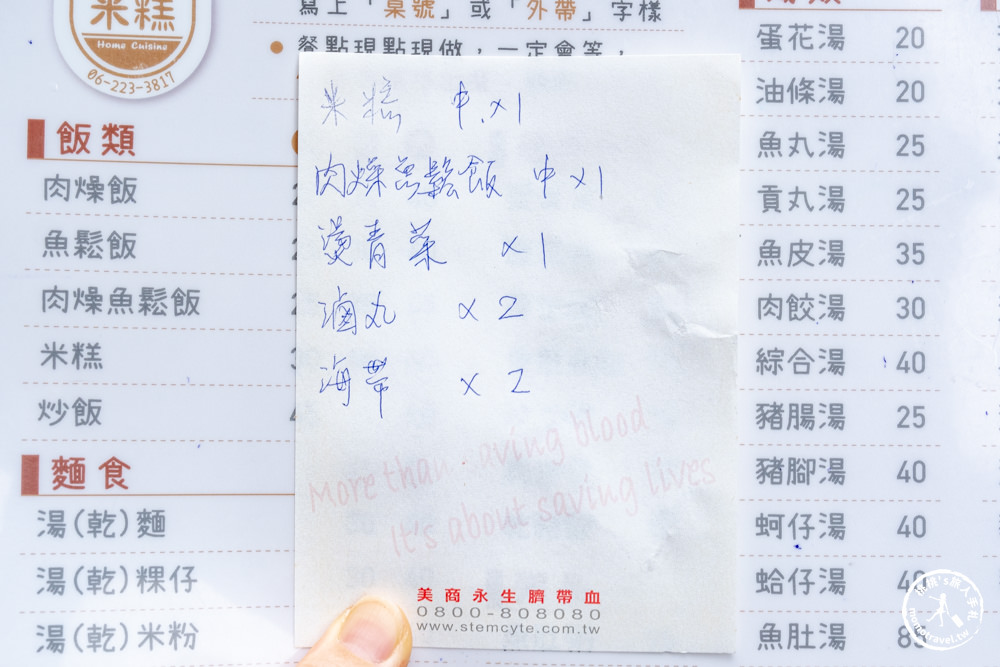 米糕
Home Cuisine
06-223-3817
寫上「桌號」或「外帶」字樣
餐點現點現做，一定會等，
飯類
肉燥飯
魚鬆飯
肉燥魚鬆飯
米糕
炒飯
麵食
湯(乾)麵
湯(乾)粿仔
湯(乾)米粉
米糕 中 x1
肉燥魚鬆飯 中 x1
燙青菜 x1
滷丸 x2
海帶 x2
More than saving blood
It's about saving lives
美商永生臍帶血
0800-808080
www.stemcyte.com.tw
蛋花湯 20
油條湯 20
魚丸湯 25
貢丸湯 25
魚皮湯 35
肉餃湯 30
綜合湯 40
豬腸湯 25
豬腳湯 40
蚵仔湯 40
蛤仔湯
魚肚湯